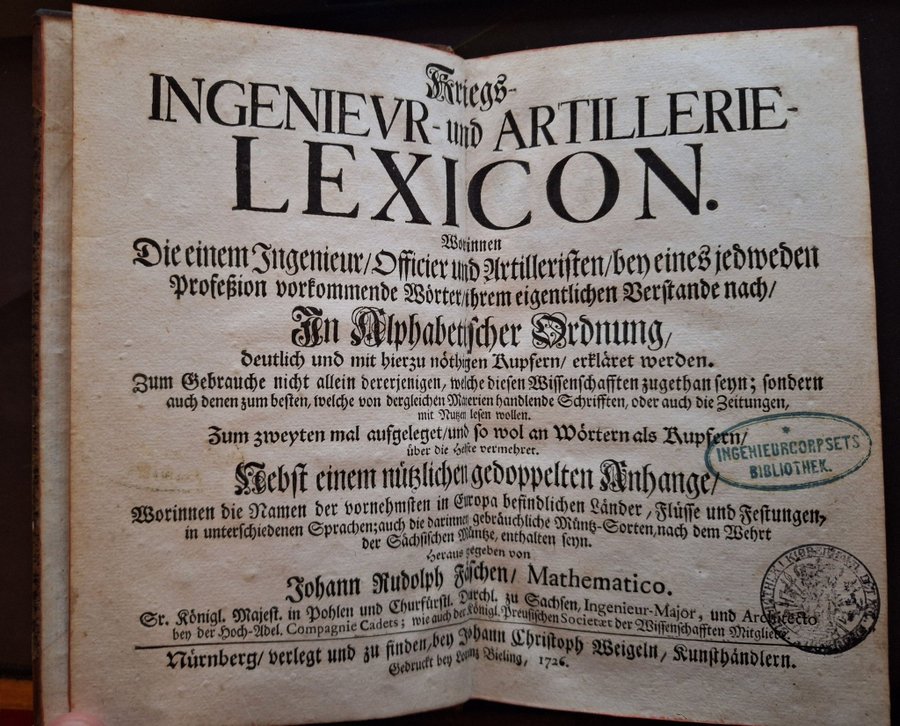 Kriegs-
INGENIEVR- und ARTILLERIE-
LEXICON.
Worinnen
Die einem Ingenieur/ Officier und Artilleristen/ bey eines jedweden
Profeßion vorkommende Wörter/ ihrem eigentlichen Verstande nach/
In Alphabetischer Ordnung/
deutlich und mit hierzu nöthigen Kupfern/ erkläret werden.
Zum Gebrauche nicht allein dererjenigen, welche diesen Wissenschafften zugethan seyn; sondern
auch denen zum besten, welche von dergleichen Materien handlende Schrifften, oder auch die Zeitungen,
mit Nutzen lesen wollen.
Zum zweyten mal aufgeleget/ und so wol an Wörtern als Kupfern/
über die Helfte vermehret.
Nebst einem nützlichen gedoppelten Anhange/
Worinnen die Namen der vornehmsten in Europa befindlichen Länder, Flüsse und Festungen,
in unterschiedenen Sprachen; auch die darinnen gebräuchliche Müntz-Sorten, nach dem Wehrt
der Sächsischen Müntze, enthalten seyn.
Heraus gegeben von
Johann Rudolph Fäschen/ Mathematico.
Sr. Königl. Majest. in Pohlen und Churfürstl. Durchl. zu Sachsen, Ingenieur-Major, und Architecto
bey der Hoch-Adel. Compagnie Cadets; wie auch der Königl. Preussischen Societæt der Wissenschafften Mitgliede.
Nürnberg/ verlegt und zu finden/ bey Johann Christoph Weigeln/ Kunsthändlern.
Gedruckt bey Lorenz Bieling, 1726.
INGENIEURCORPSETS
BIBLIOTHEK.